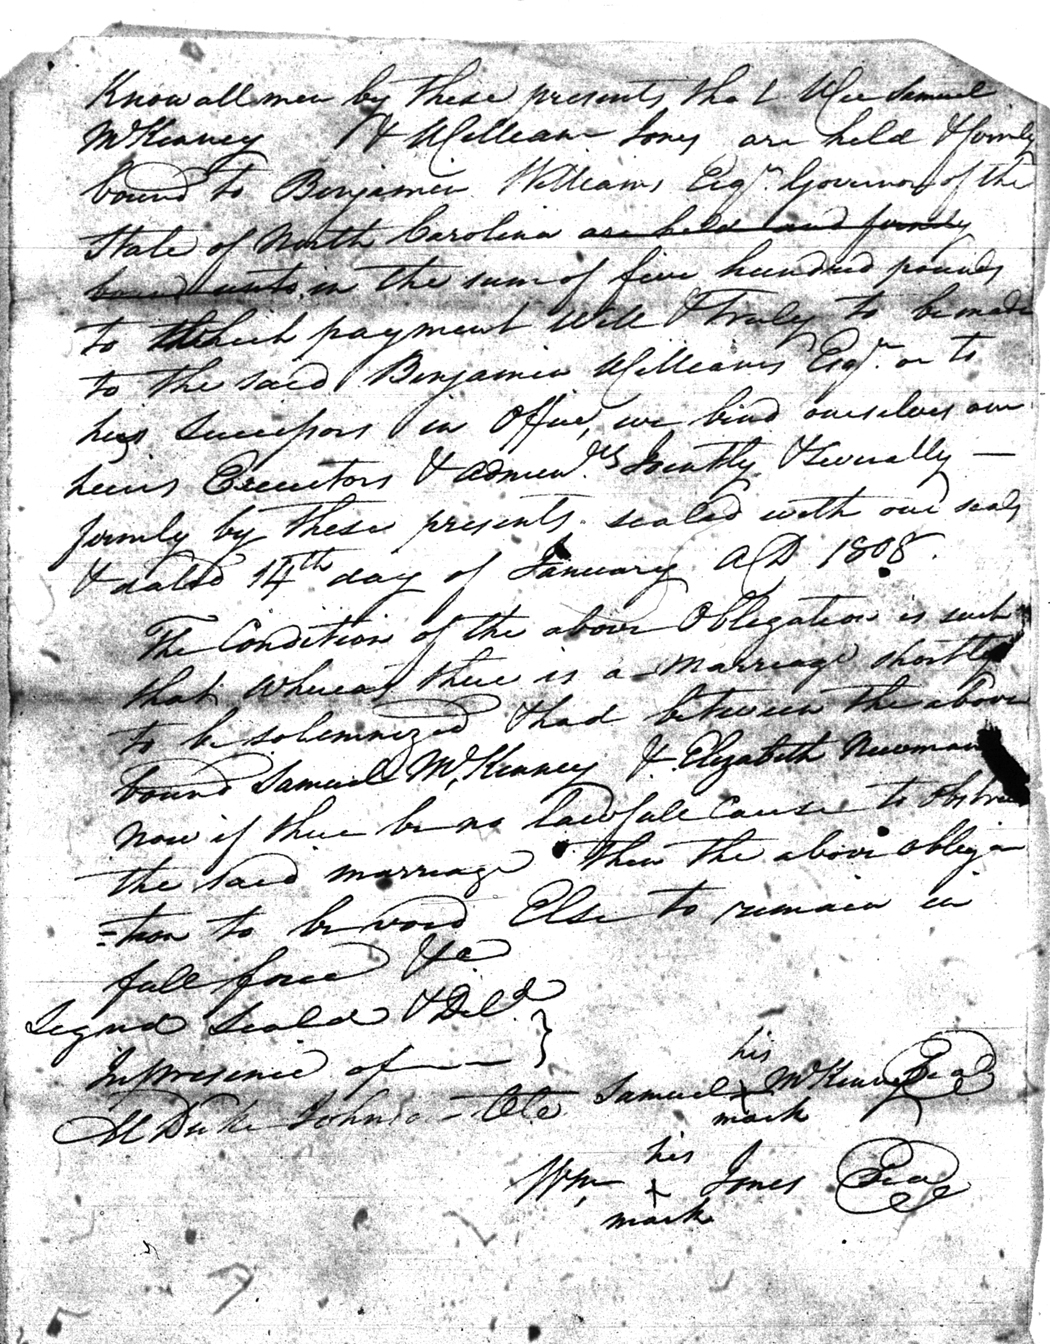 Know all men by these presents that We Samuel
McKenney & William Jones are held & firmly
bound to Benjamin Williams Esqr. Governor of the
State of North Carolina are held and firmly
bound unto in the sum of five hundred pounds
to Which payment Well & truly to be made
to the said Benjamin Williams Esqr. or to
his Successors in Office, we bind ourselves our
heirs Executors & admin.rs Jointly & Severally —
firmly by these presents sealed with our seals
& dated 14th day of January AD 1808.
The Condition of the above Obligation is such
that Whereas there is a Marriage shortly
to be solemnized & had between the above
bound Samuel McKenney & Elizabeth Newman
Now if there be no lawfull Cause to obstruct
the said marriage then the above obliga
=tion to be void Else to remain in
full force &c
Signd Seald & Deld.
In presence of
M Duke Johnson
his
Samuel x McKenney Seal
mark
his
Wm x Jones Seal
mark